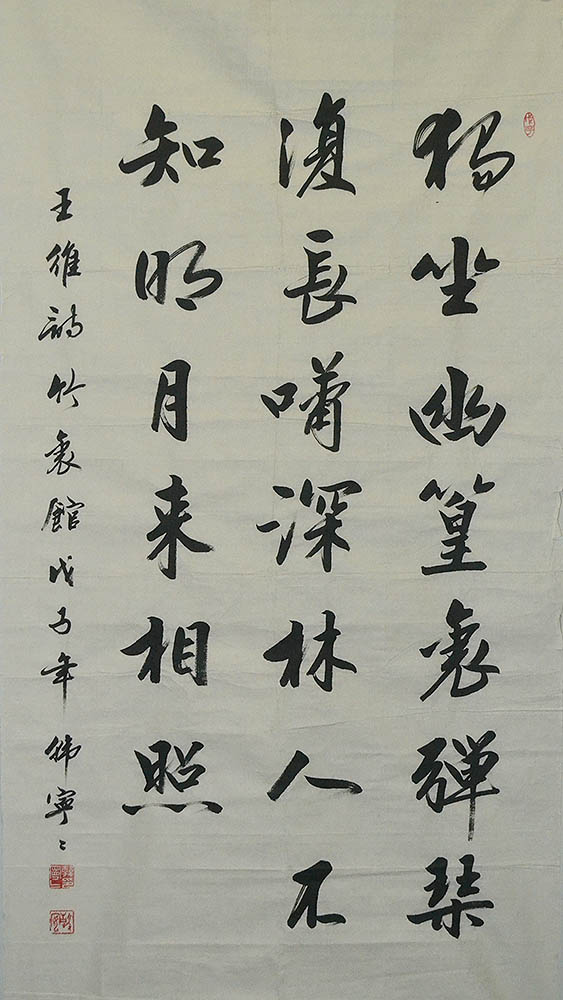 独坐幽篁裏弹琴
復長嘯深林人不
知明月来相照
王維詩竹裏館戊子年韩寧寧